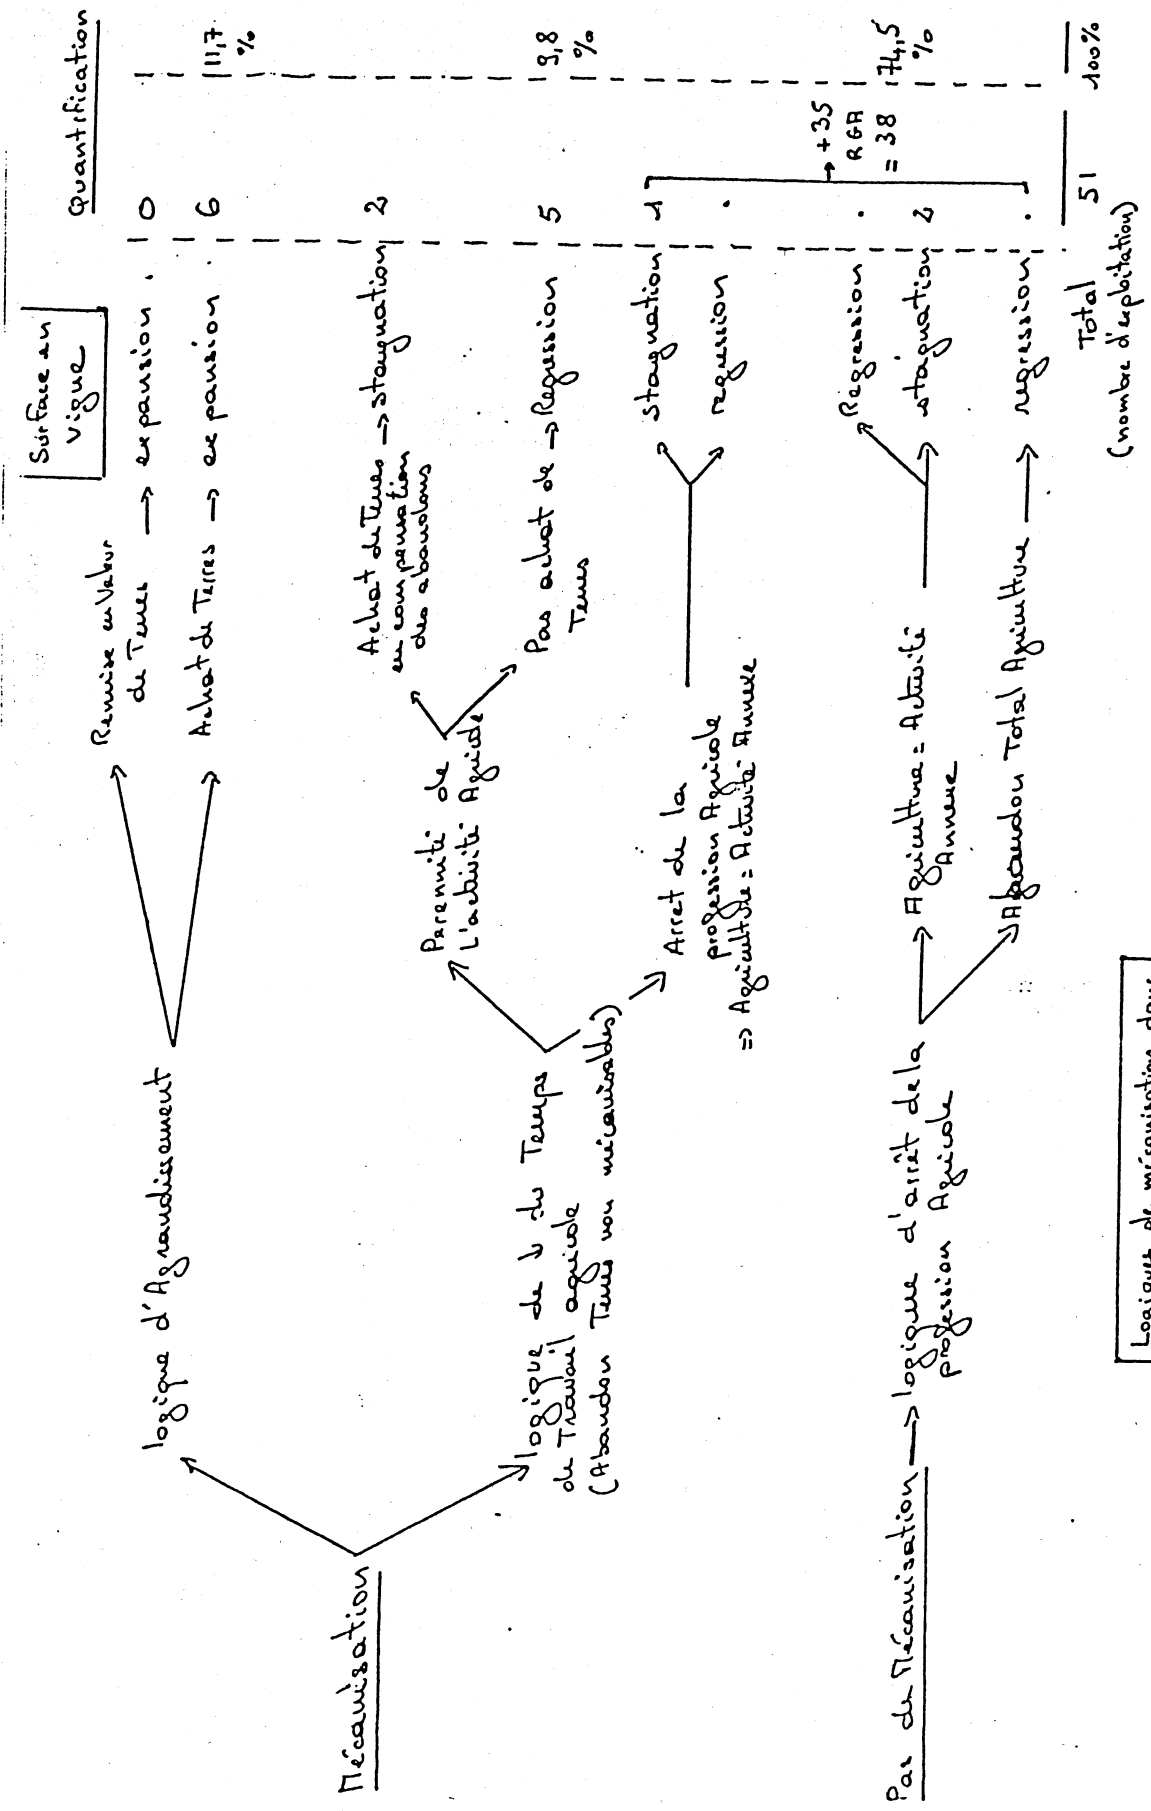 Surface en
Vigne
Quantification
Mécanisation
logique d'Agrandissement
Remise en Valeur
de Terres → expansion .
0
Achat de Terres → expansion .
6
11,7
%
logique de ↓ du Temps
de Travail agricole
(Abandon Terres non mécanisables)
Perennité de
L'activité Agricole
Achat de Terres → stagnation
en compensation
des abandons
2
Pas achat de → Regression
Terres
5
9,8
%
Arret de la
profession Agricole
=> Agriculture = Activité Annexe
stagnation
1
regression
.
Pas de Mécanisation → logique d'arrêt de la
profession Agricole
Agriculture = Activité
Annexe
Regression
.
stagnation
2
Abandon Total Agriculture → regression
.
→ +35
RGA
= 38
74,5
%
Total
(nombre d'exploitation)
51
100%
Logiques de mécanisation dans